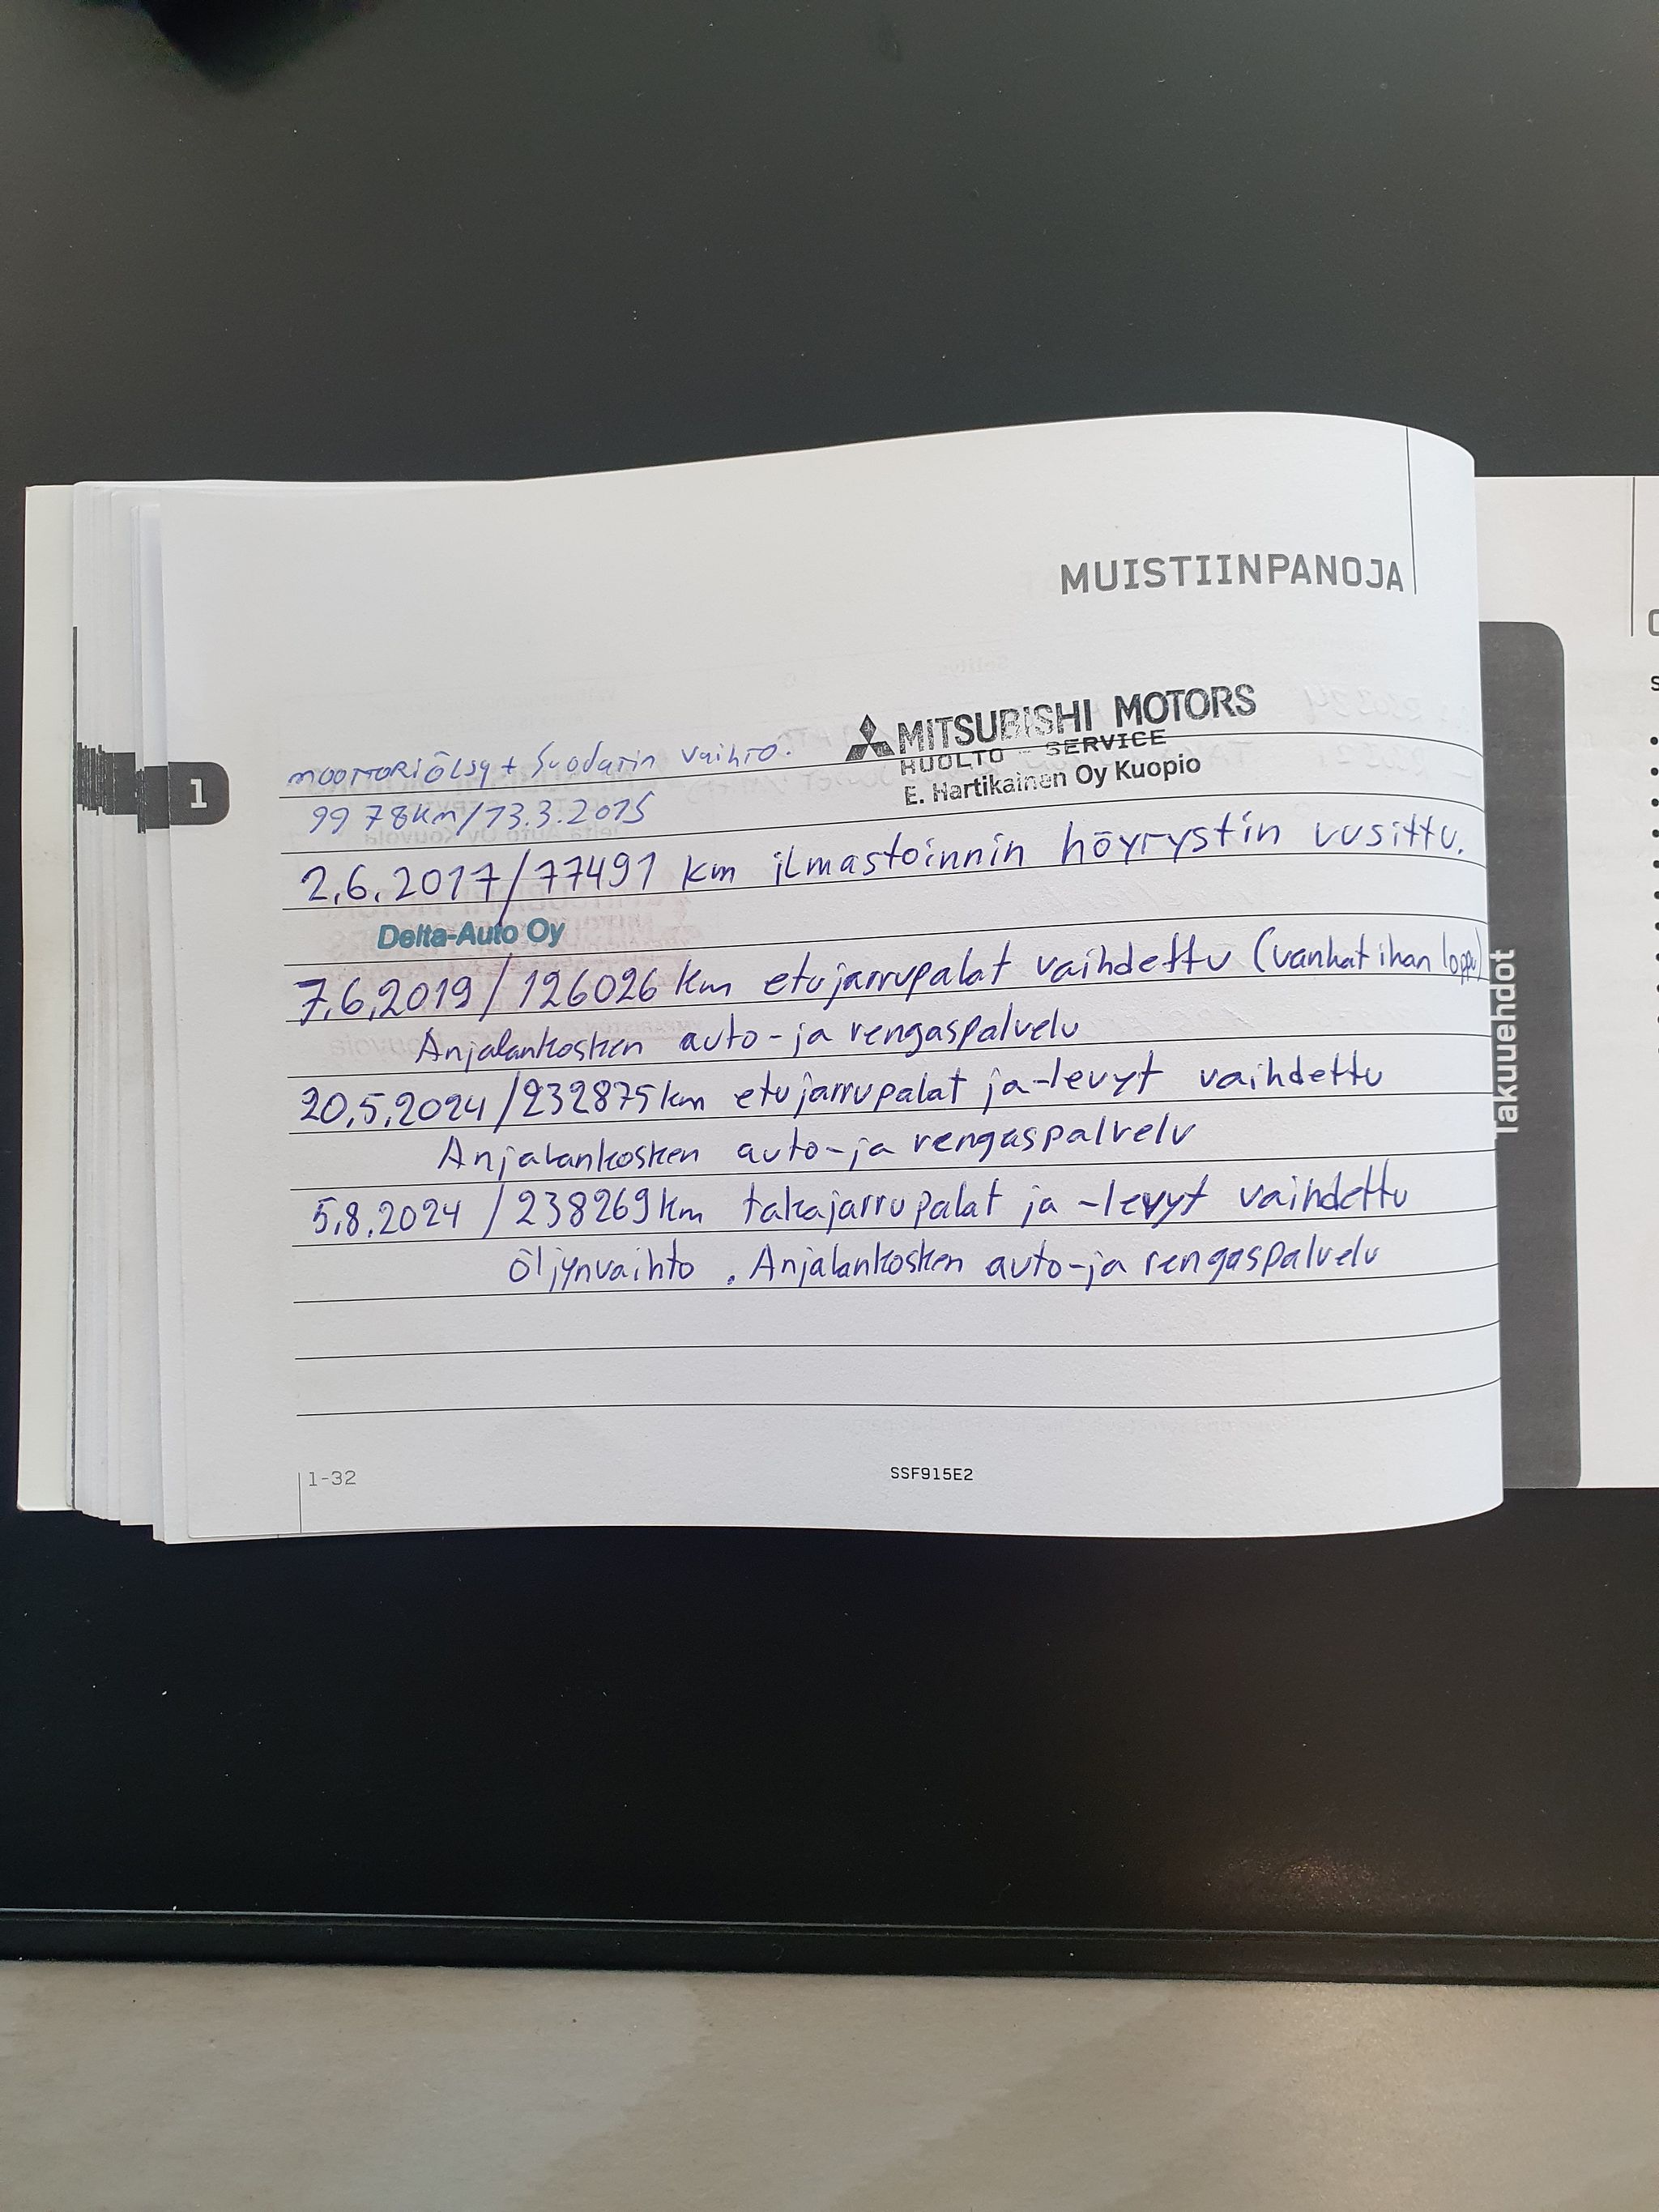 MUISTIINPANOJA
MITSUBISHI MOTORS
HUOLTO - SERVICE
E. Hartikainen Oy Kuopio
moottoriöljy + Suodatin vaihto.
9978km/13.3.2015
2.6.2017/77491 km ilmastoinnin höyrystin uusittu.
Delta-Auto Oy
7.6.2019/126026 km etujarrupalat vaihdettu (vanhat ihan loppu)
Anjalankosken auto-ja rengaspalvelu
20.5.2024/232875km etujarrupalat ja-levyt vaihdettu
Anjalankosken auto-ja rengaspalvelu
5.8.2024/238269km takajarrupalat ja -levyt vaihdettu
öljynvaihto. Anjalankosken auto-ja rengaspalvelu
1-32
SSF915E2
1
Takuuehdot